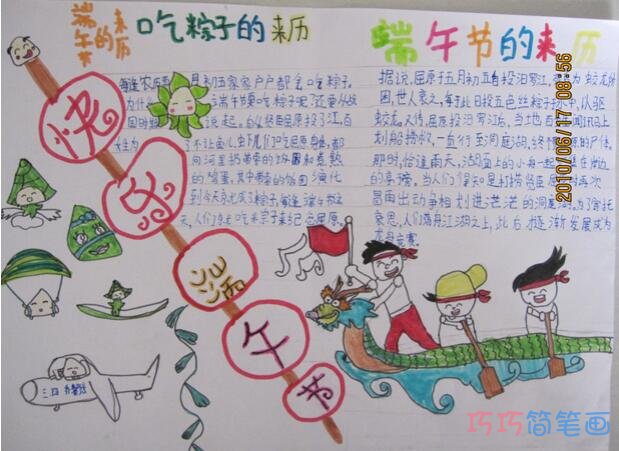 端午的来历
吃粽子的来历
端午节的来历
快乐端午节
每逢农历
月初五家家户户都会吃粽子.
为什么
端午节要吃粽子呢?还要从战
国时期
说起。
屈原投了江,百
姓为
了不让鱼、虾
们吃屈原身体,都
向河里扔带来的饭团和煮熟
的鸡蛋,其中带来的饭团演化
到今天就成了粽子,每逢端午
天,人们
吃米粽子来纪念屈原。
据说,屈原于五月初五自投汨罗江,
为蛟龙所
困,世人哀之,每于此日投五色丝粽子于水中,以驱
蛟龙。又传,屈原投汨罗江后,当地百
闻讯马上
划船捞救,一直行至洞庭湖,终不见屈原的尸体。
那时,恰逢雨天,湖面上的小舟一起
在岸边
的亭
旁。当人们得知是打捞贤臣
时再次
冒雨出动争相划进茫茫的洞庭湖。为了寄托
哀思,人们荡舟江湖之上,此后
逐渐发展成为
龙舟竞赛。
2010/06/17 08:56
巧巧简笔画